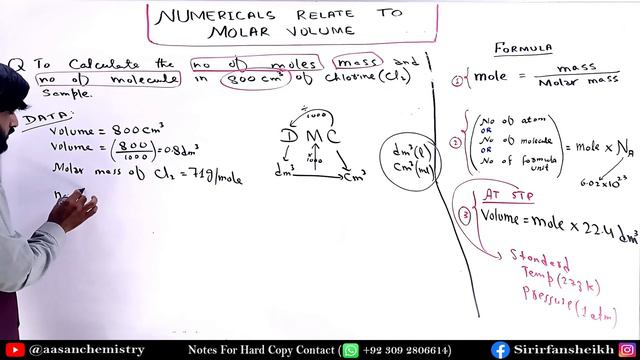 NUMERICALS RELATE TO
MOLAR VOLUME
Q To Calculate the no of moles mass and
no of molecule in 800 cm³ of chlorine (Cl₂)
Sample.
DATA:
Volume = 800 cm³
Volume = (800/1000) = 0.8 dm³
Molar mass of Cl₂ = 71g/mole
no
÷
1000
D M C
×
1000
dm³ Cm³
dm³ (l)
Cm³ (ml)
FORMULA
① mole = mass / Molar mass
② (No of atom
OR
No of molecule
OR
No of formula
unit) = mole × N_A
6.02×10²³
③ AT STP
Volume = mole × 22.4 dm³
Standard
Temp (273k)
Pressure (1 atm)
@aasanchemistry Notes For Hard Copy Contact ( +92 309 2806614) Sirirfansheikh